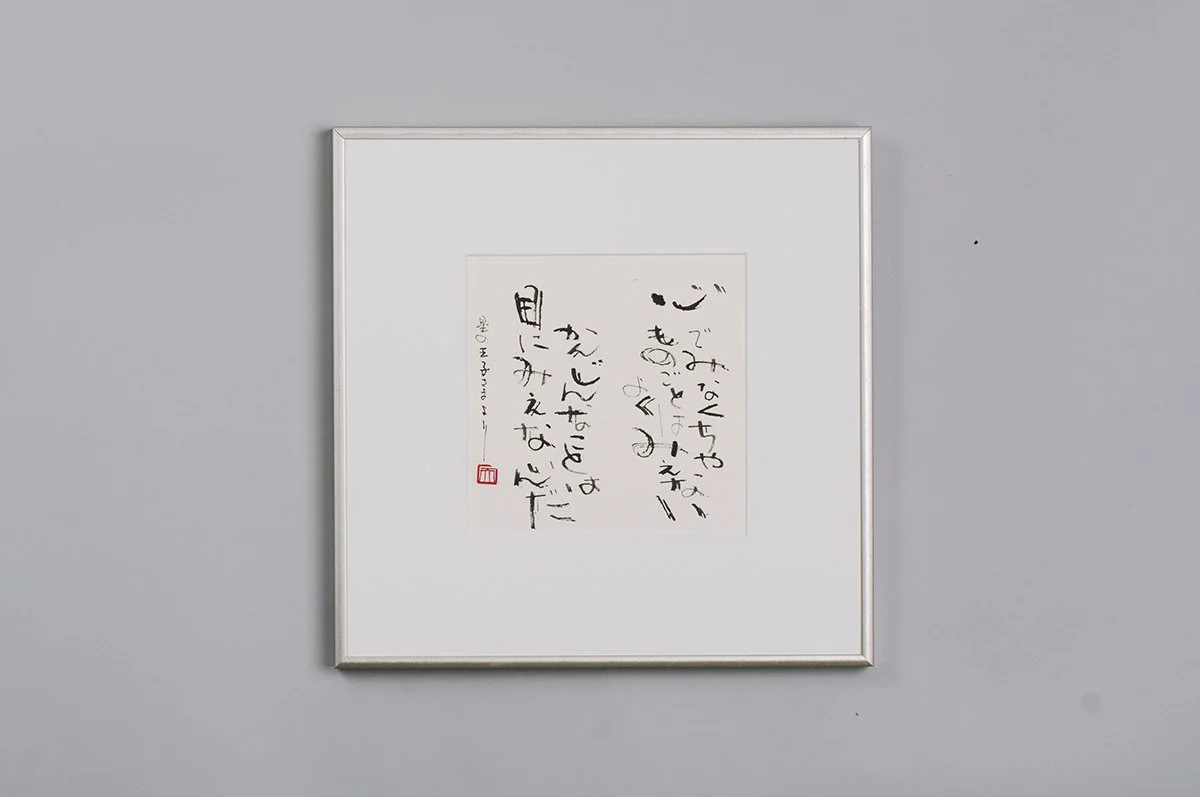 心でみなくちゃ
ものごとは
よくみえない
かんじんなことは
目にみえないんだ
星の王子さまより